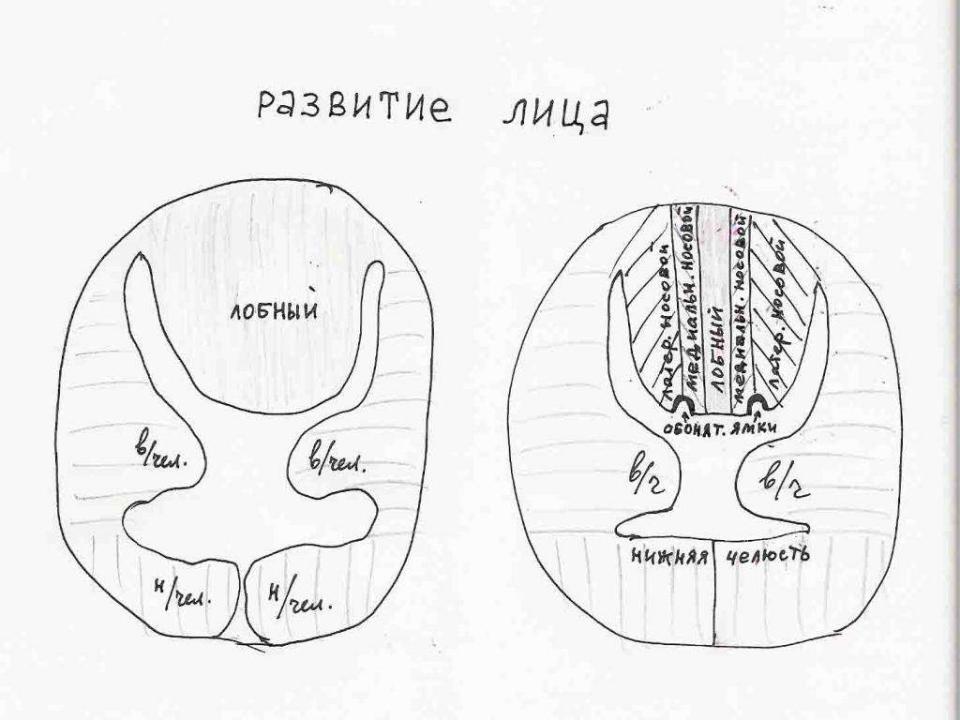 развитие лица
лобный
в/чел.
в/чел.
н/чел.
н/чел.
латер. носовой
медиальн. носовой
лобный
медиальн. носовой
латер. носовой
обонят. ямки
в/ч
в/ч
нижняя челюсть